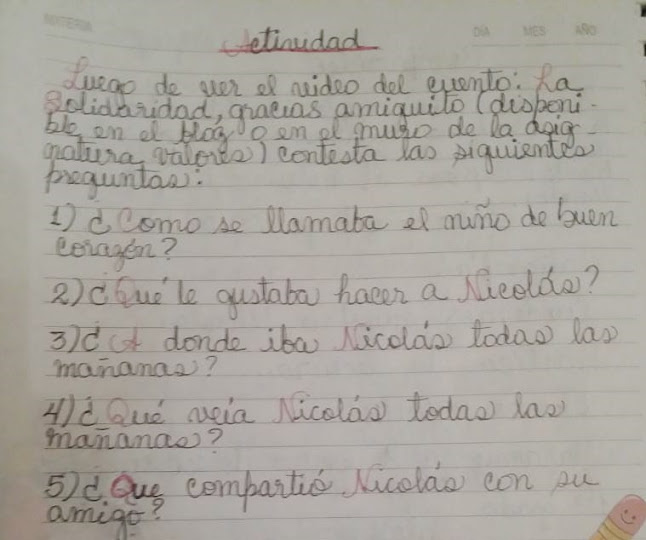 MATERIA
DÍA MES AÑO
Actividad
Luego de ver el video del cuento: La
Solidaridad, gracias amiguito (disponi-
ble en el blog o en el muro de la asig-
natura valores) contesta las siguientes
preguntas:
1) ¿Como se llamaba el niño de buen
corazón?
2) ¿Qué le gustaba hacer a Nicolás?
3) ¿A donde iba Nicolás todas las
mañanas?
4) ¿Qué veía Nicolás todas las
mañanas?
5) ¿Que compartió Nicolás con su
amigo?